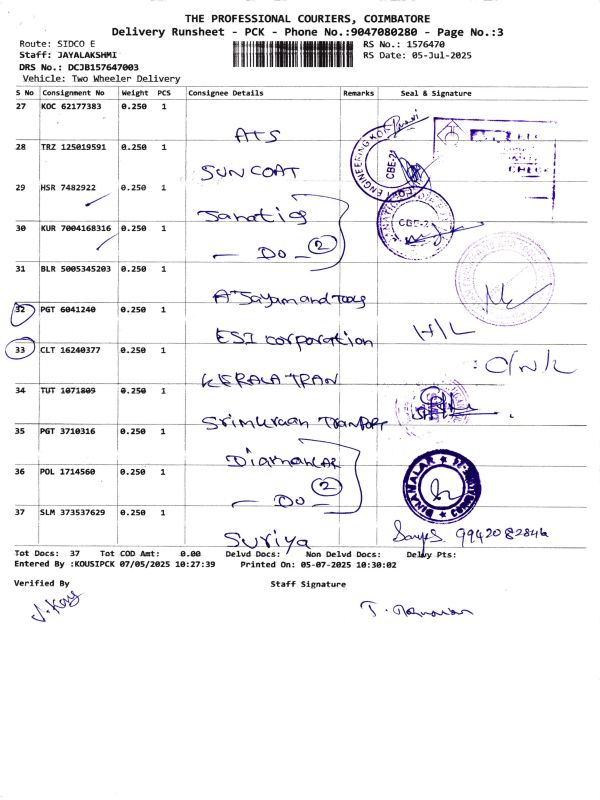 THE PROFESSIONAL COURIERS, COIMBATORE
Delivery Runsheet - PCK - Phone No.:9047080280 - Page No.:3
Route: SIDCO E
RS No.: 1576470
Staff: JAYALAKSHMI
RS Date: 05-Jul-2025
DRS No.: DCJB157647003
Vehicle: Two Wheeler Delivery
S No Consignment No Weight PCS Consignee Details Remarks Seal & Signature
27 KOC 62177383 0.250 1
ATS
28 TRZ 125019591 0.250 1
SUN COAT
CBE-21
29 HSR 7482922 0.250 1
30 KUR 7004168316 0.250 1
CBE-21
— Do — 2
31 BLR 5005345203 0.250 1
32 PGT 6041240 0.250 1
ESI corporation
H/L
33 CLT 16240377 0.250 1
KERALA TRAN
34 TUT 1071809 0.250 1
35 PGT 3710316 0.250 1
36 POL 1714560 0.250 1
— Do 2
37 SLM 373537629 0.250 1
Suriya
9942082846
Tot Docs: 37 Tot COD Amt: 0.00 Delvd Docs: Non Delvd Docs: Delvy Pts:
Entered By :KOUSIPCK 07/05/2025 10:27:39 Printed On: 05-07-2025 10:30:02
Verified By Staff Signature